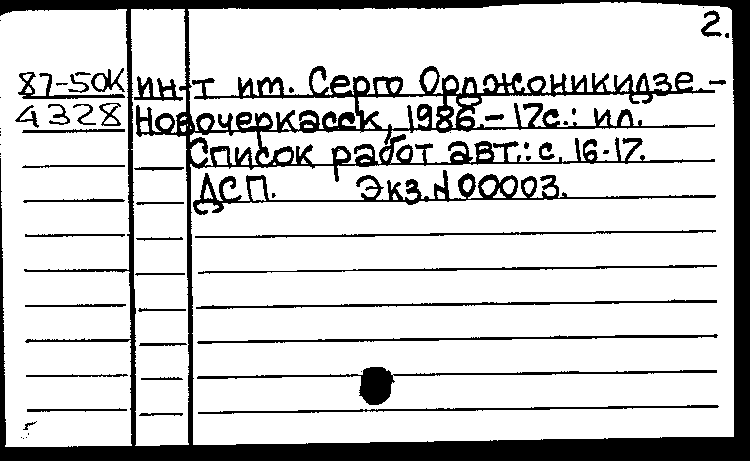 2.
87-50К ин-т им. Серго Орджоникидзе.-
4328 Новочеркасск, 1986.- 17с.: ил.
Список работ авт.: с. 16-17.
ДСП. Экз.N00003.